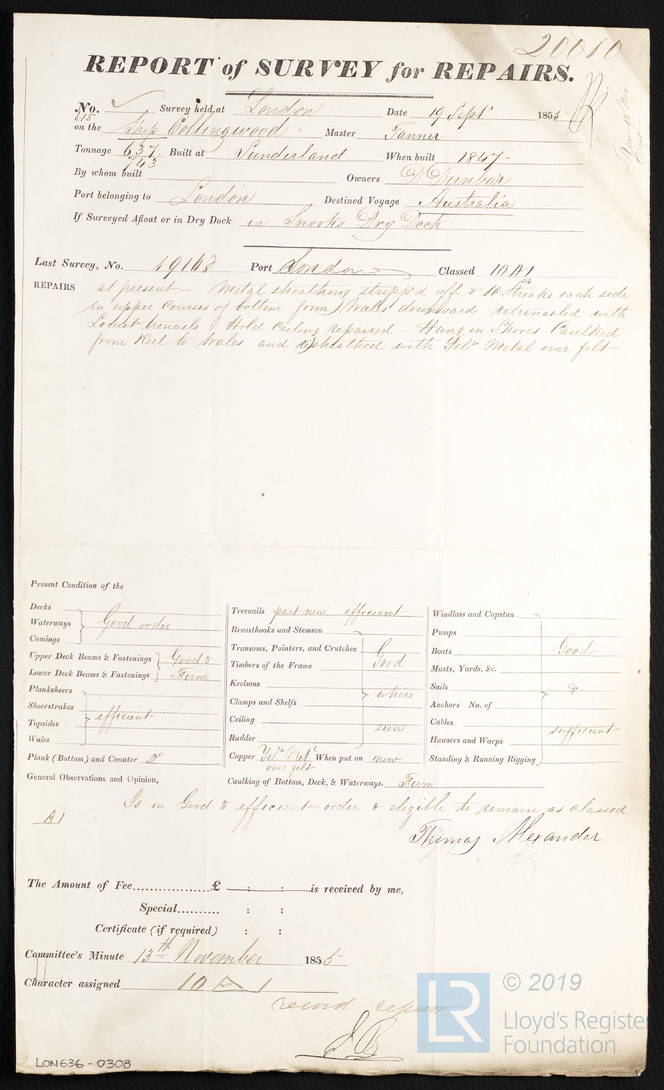 20010
REPORT of SURVEY for REPAIRS.
No. 615 Survey held at London Date 19 Sept 1855
on the Ship Collingwood Master Tanner
Tonnage 637 / 743 Built at Sunderland When built 1847
By whom built Owners D Dunbar
Port belonging to London Destined Voyage Australia
If Surveyed Afloat or in Dry Dock in Snooks Dry Dock
Last Survey, No. 19168 Port London Classed 10 A1
REPAIRS at present - Metal sheathing stripp'd off & 10 Streaks each side
in upper courses of bottom from Wales downward retrenailed with
Locust trenails Hold Ceiling repaired - Hung in Shores Caulked
from Keel to Wales and resheathed with Yelw Metal over felt
Present Condition of the
Decks
Waterways Good order
Comings
Upper Deck Beams & Fastenings Good &
Lower Deck Beams & Fastenings Firm
Planksheers
Sheerstrakes
Topsides efficient
Wales
Plank (Bottom) and Counter Do
General Observations and Opinion,
Treenails part new efficient
Breasthooks and Stemson
Transoms, Pointers, and Crutches
Timbers of the Frame Good
Keelsons
Clamps and Shelfs where
Ceiling
Rudder seen
Copper Yelw Metl over felt When put on now
Caulking of Bottom, Deck, & Waterways. Firm
Windlass and Capstan
Pumps
Boats Good
Masts, Yards, &c.
Sails &
Anchors No. of
Cables
Hawsers and Warps sufficient
Standing & Running Rigging
Is in Good & efficient order & eligible to remain as classed
A1
Thomas Alexander
The Amount of Fee................£ : : is received by me,
Special.......... : :
Certificate (if required) : :
Committee's Minute 13th November 1855
Character assigned 10 A 1
record repairs
LON636-0308
LR
© 2019
Lloyd's Register
Foundation